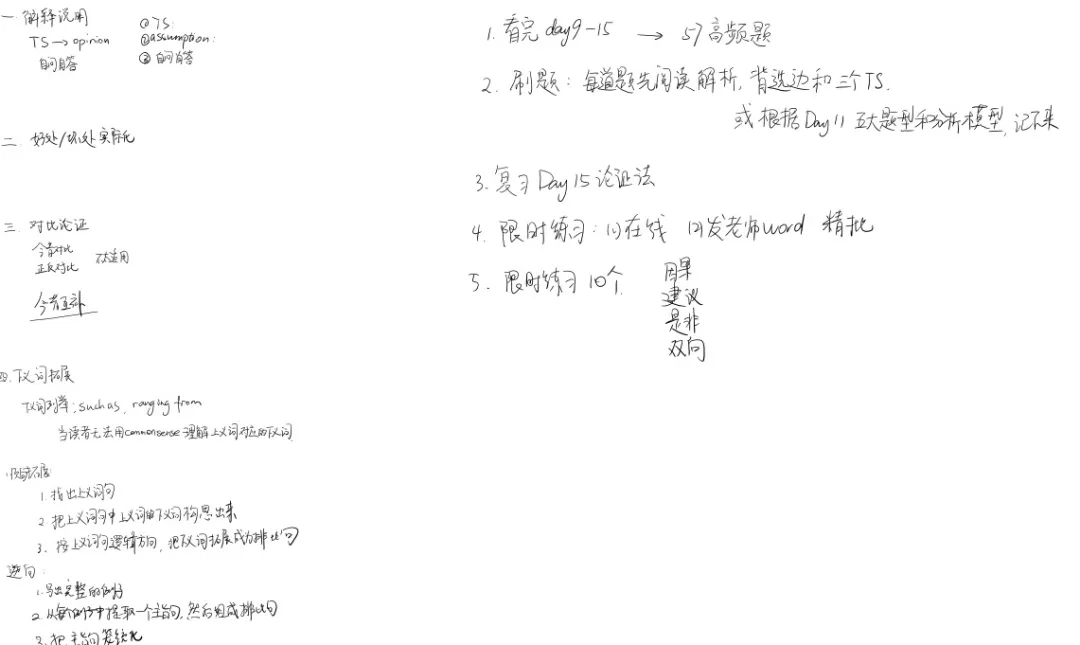 一. 解释说明
① TS:
TS → opinion
② assumption:
自问自答
③ 自问自答
二. 好处/坏处实际化
三. 对比论证
今昔对比
正反对比 不太适用
今昔互补
四. 下义词拓展
下义词列举: such as, ranging from
当读者无法用commonsense理解上义词对应的下义词
1. 找出上义词句
2. 把上义词句中上义词的下义词构思出来
3. 按上义词句逻辑方向, 把下义词拓展成为排比句
逆向:
1. 写出完整的例子
2. 从每个例子中提取一个主旨句, 然后组成排比句
3. 把主旨句
1. 看完 day9-15 → 57高频题
2. 刷题: 每道题先阅读解析, 背选边和三个TS.
或根据Day 11 五大题型和分析模型, 记下来
3. 复习Day 15 论证法
4. 限时练习: (1)在线 (2)发老师word 精批
5. 限时练习 10个
因果
建议
是非
双向